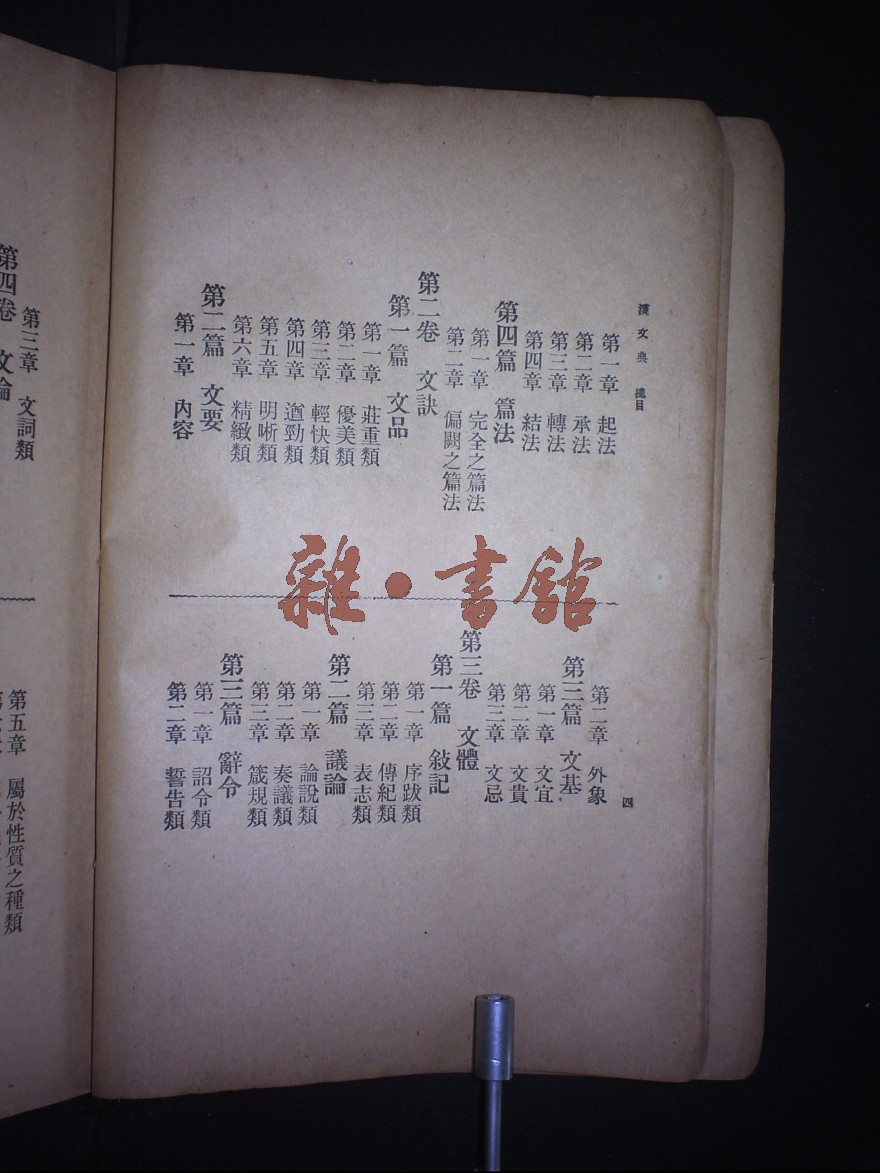 漢文典 總目
第一章 起法
第二章 承法
第三章 轉法
第四章 結法
第四篇 篇法
第一章 完全之篇法
第二章 偏闕之篇法
第二卷 文訣
第一篇 文品
第一章 莊重類
第二章 優美類
第三章 輕快類
第四章 遒勁類
第五章 明晰類
第六章 精緻類
第二篇 文要
第一章 內容
第二章 外象
第三篇 文基
第一章 文宜
第二章 文貴
第三章 文忌
第三卷 文體
第一篇 敍記
第一章 序跋類
第二章 傳紀類
第三章 表志類
第二篇 議論
第一章 論說類
第二章 奏議類
第三章 箴規類
第三篇 辭令
第一章 詔令類
第二章 誓告類
四
雜·書館
第三章 文詞類
第四卷 文論
第五章 屬於性質之種類